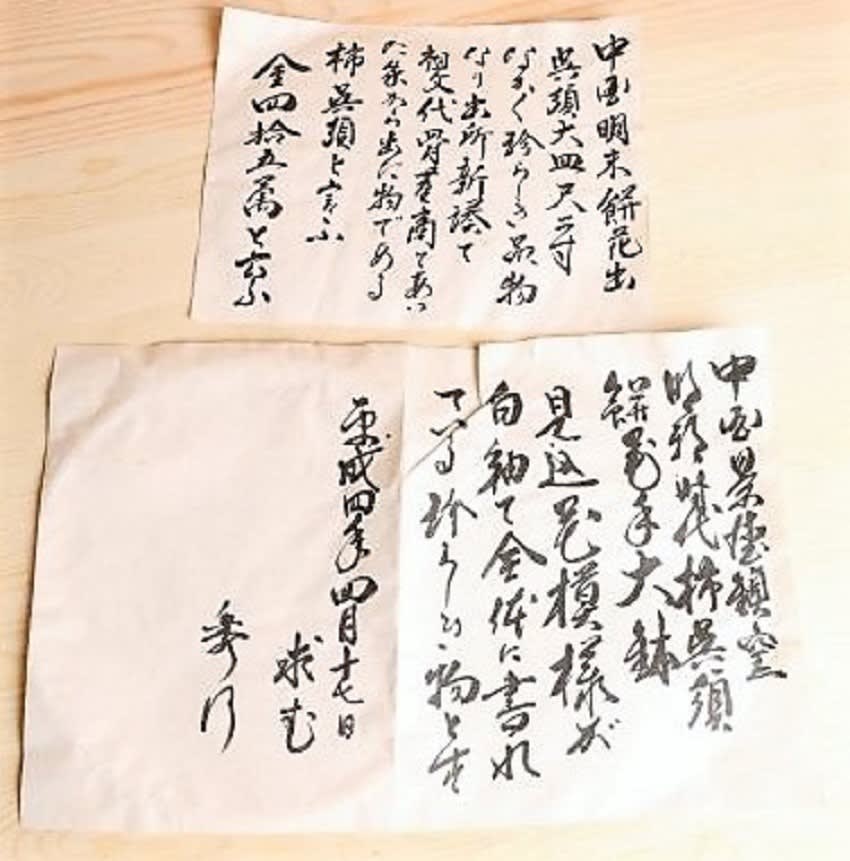 中国明末餅花出
呉須大皿尺二寸
なかく珍らしき品物
なり出所新塔て
祖父代骨董商てあい
た 出た物である
柿呉須と言ふ
金四拾五萬と云ふ
中国景徳鎮窯
明朝時代柿呉須
餅花手大鉢
見込花模様が
白釉て全体に書れ
ている珍らしい物とす
平成四年四月十七日
求む